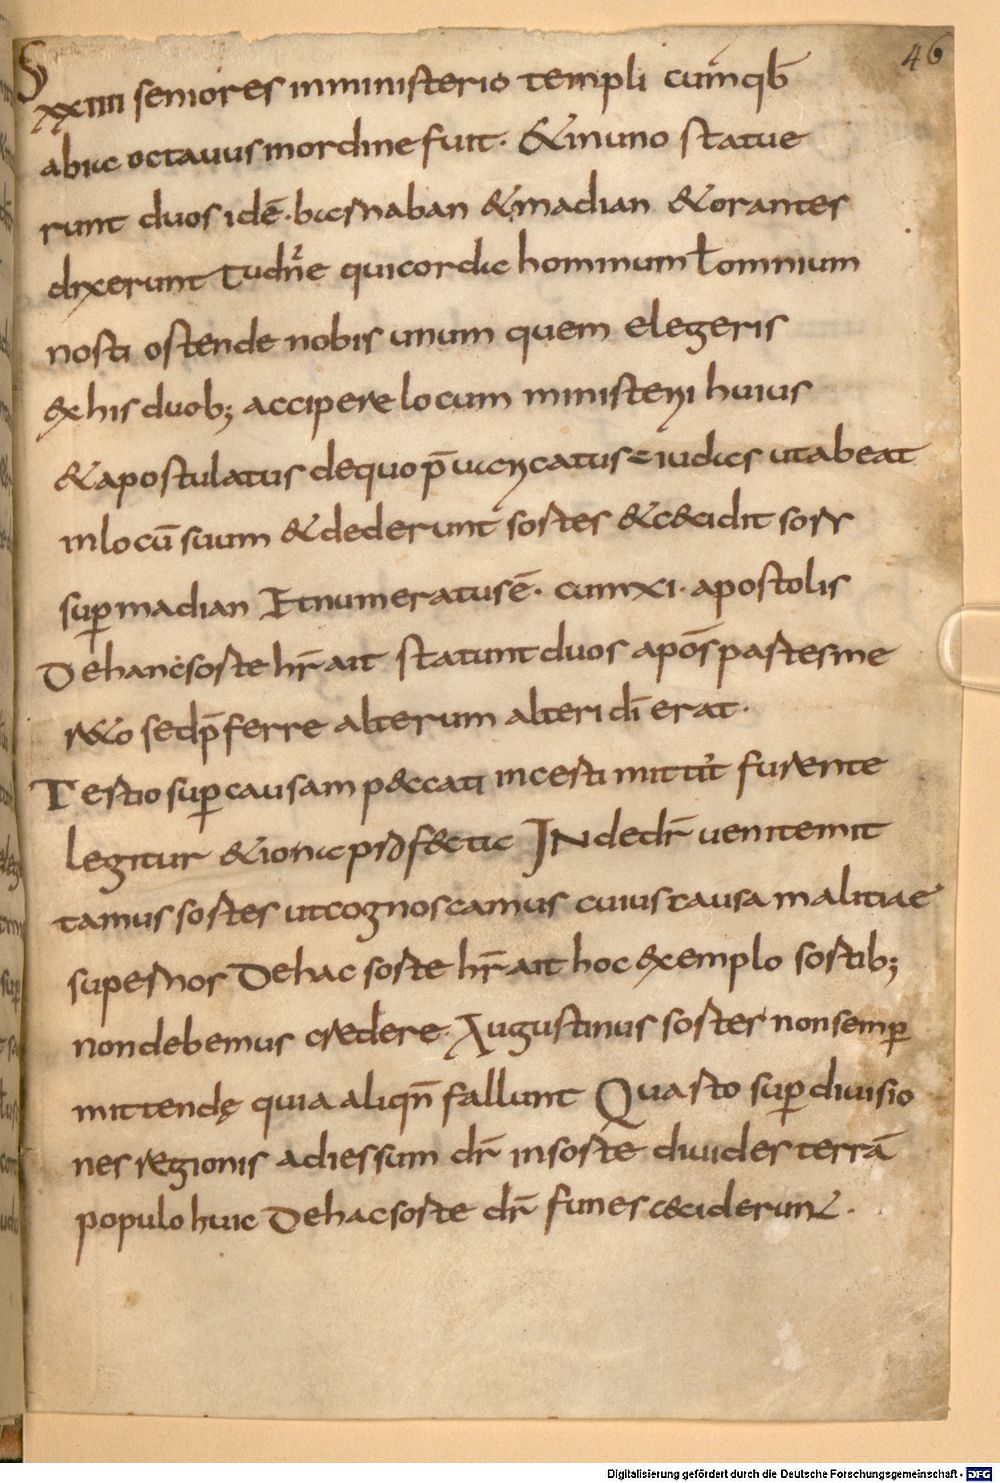 46
xxiiii seniores inministerio templi cumqb̄
abiic octauus inordine fuit. &inuno statue
runt duos idē. bicsnaban &madian &orantes
dixerunt Tudn̄e quicordic hominum ł omnium
nosti ostende nobis unum quem elegeris
exhis duob; accipere locum ministerii huius
&apostulatus dequo p̄uicricatus ÷ iudics utabeat
inlocū suum &dederunt sortes &c&idit sorr
sup madian Etnumeratus ē. cum xi. apostolis
Dehancsorte hr̄ ait statunt duos apōs partesme
r&o sedp̄ferre alterum alteri dn̄i erat.
Tertio sup causam p&ccati incesti mittit furente
legitur &ionicprof&tic IN dedr̄ uenitemit
tamus sortes utcognoscamus cuius causa malitiae
supernos Dehac sorte hr̄ ait hoc exemplo sortib;
nondebemus credere. Augustinus sortes nonsemp
mittendę quia aliqn̄ fallunt Quarto sup diuisio
nes regionis adiessum dr̄ insorte diuides terrā
populo huic Dehacsorte dr̄ funes c&ciderunt.
Digitalisierung gefördert durch die Deutsche Forschungsgemeinschaft - DFG